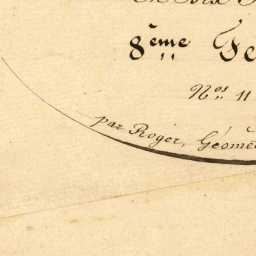 8ème Fe
Nos 11
par Roger, Géomè